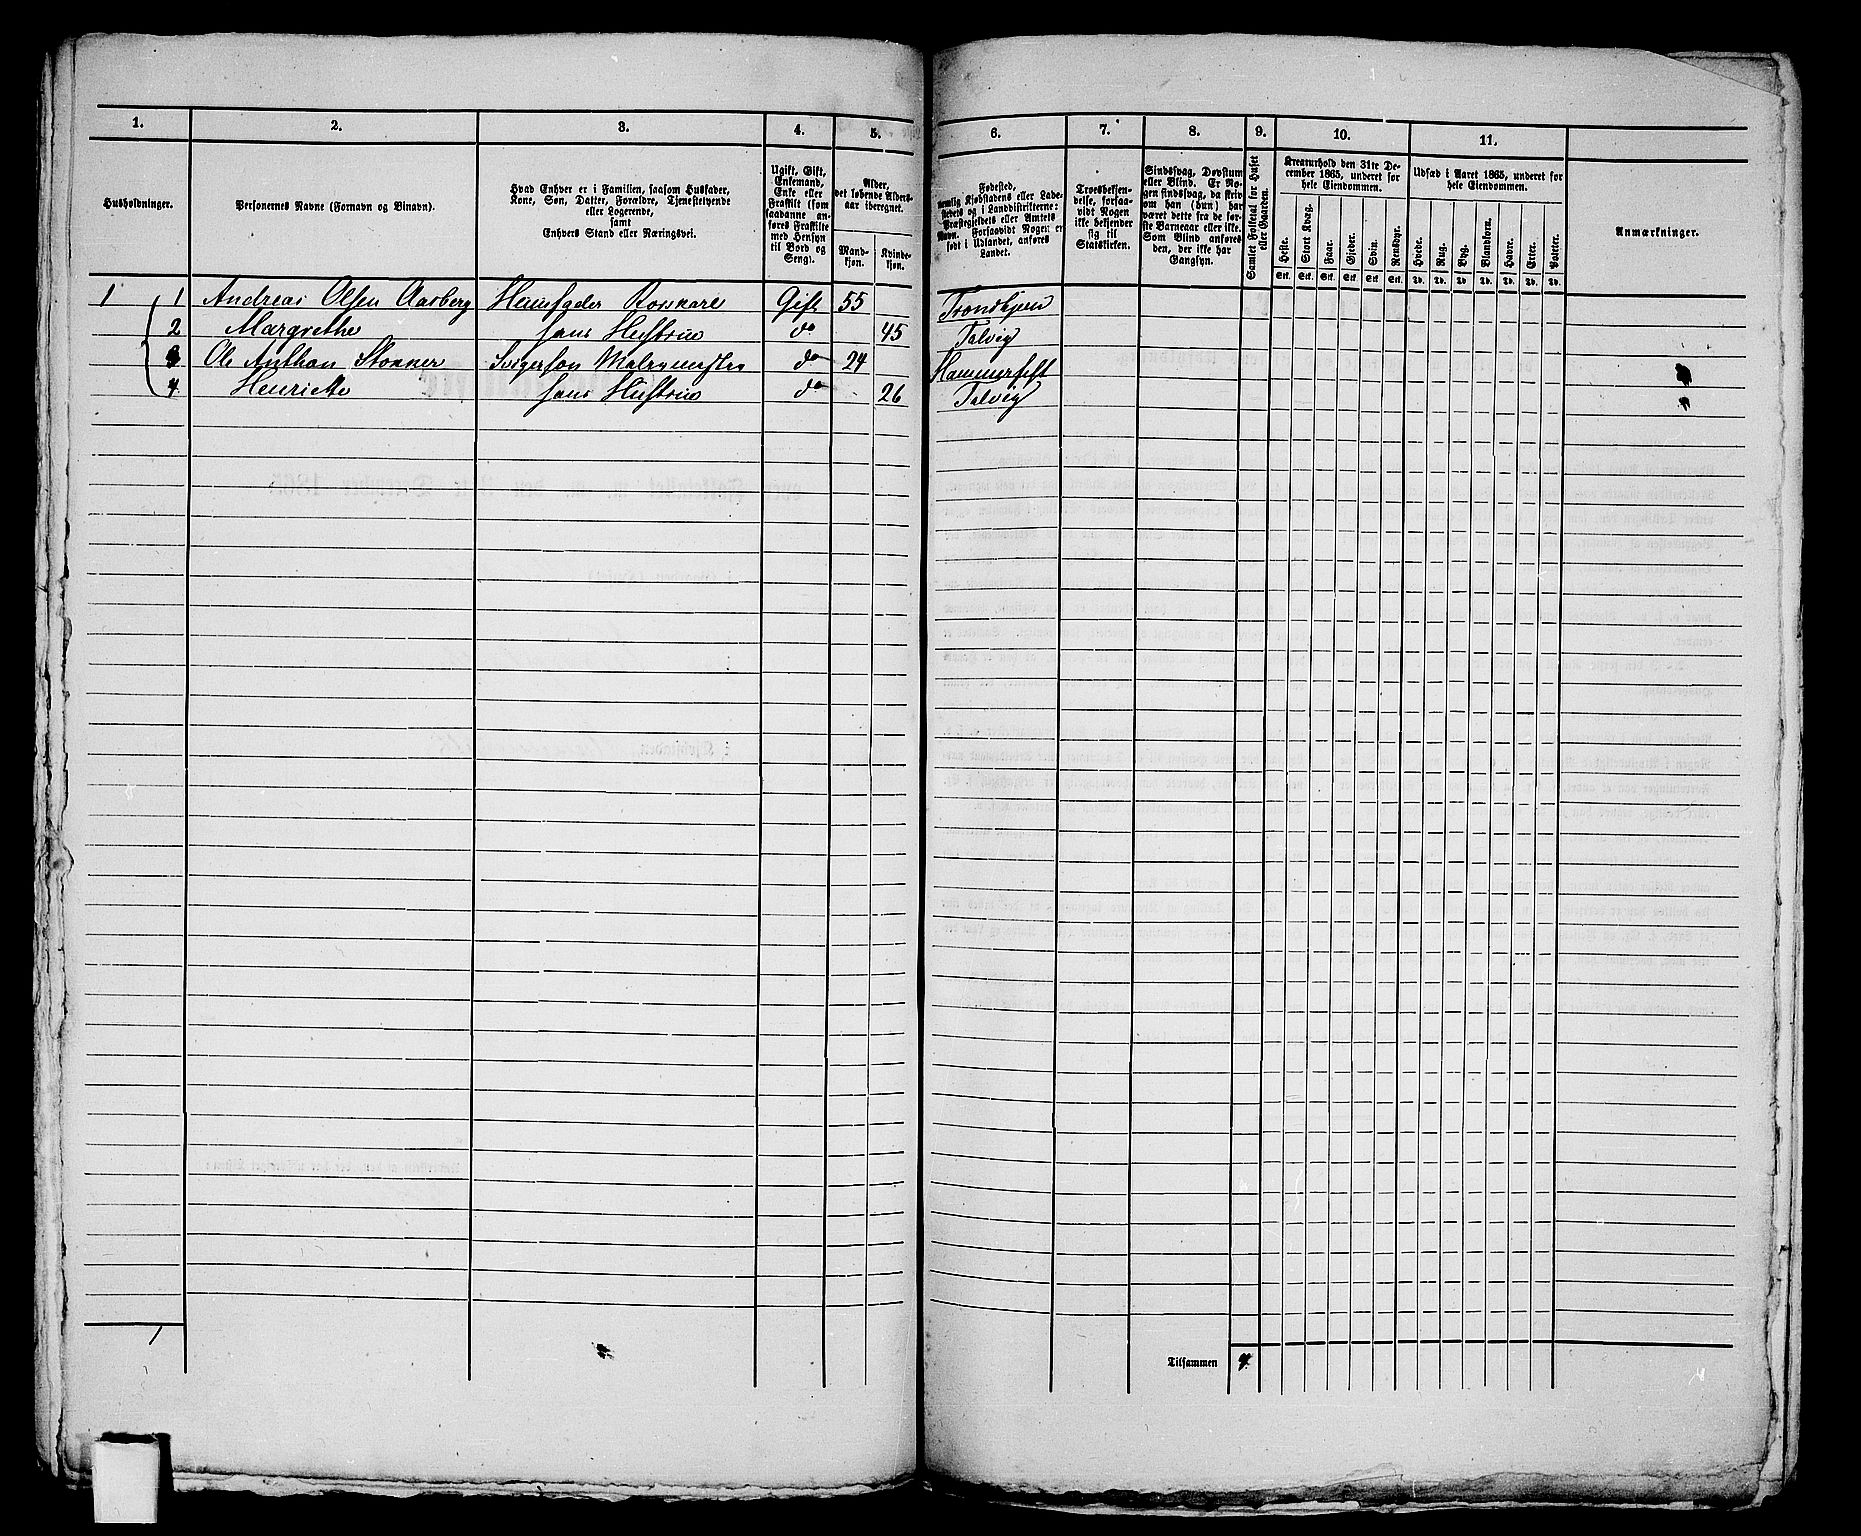 1. 2. 3. 4. 5. 6. 7. 8. 9. 10. 11.
Husholdninger.
Personernes Navne (Fornavn og Binavn).
Hvad Enhver er i Familien, saasom Husfader,
Kone, Søn, Datter, Forældre, Tjenestetyende
eller Logerende,
samt
Enhvers Stand eller Næringsvei.
Ugift, Gift,
Enkemand,
Enke eller
Fraskilt (som
saadanne an-
føres Fraskilte
med Hensyn
til Bord og
Seng).
Alder,
det løbende Alders-
aar iberegnet.
Mand-
kjøn.
Kvinde-
kjøn.
Fødested,
nemlig Kjøbstadens eller Lade-
stedets og i Landdistrikterne:
Præstegjeldets eller Amtets
Navn. Forsaavidt Nogen er
født i Udlandet, anføres
Landet.
Troesbekjen-
delse, forsaa-
vidt Nogen
ikke bekjender
sig til
Statskirken.
Sindssvag, Døvstum
eller Blind. Er No-
gen sindssvag, da skri-
ves om han (hun) har
været dette fra de før-
ste Barneaar eller ikke.
Som Blind anføres
den, der ikke har
Gangsyn.
Samlet Folketal for Huset
eller Gaarden.
Kreaturhold den 31te De-
cember 1865, underet for
hele Eiendommen.
Heste. Stort Kvæg. Faar. Gjeder. Svin. Rensdyr.
Stk. Stk. Stk. Stk. Stk. Stk.
Udsæd i Aaret 1865, underet for
hele Eiendommen.
Hvede. Rug. Byg. Blandkorn. Havre. Erter. Poteter.
Td. Td. Td. Td. Td. Td. Td.
Anmærkninger.
1 1 Andreas Olsen Aasberg Huusfader Gift 55 Trondhjem
2 Margrethe hans Hustrue do 45 Talvig
3 Ole Anthon Stonner Svigersøn do 24 Hammerfest
4 Henriette hans Hustrue do 26 Talvig
1
Tilsammen 4